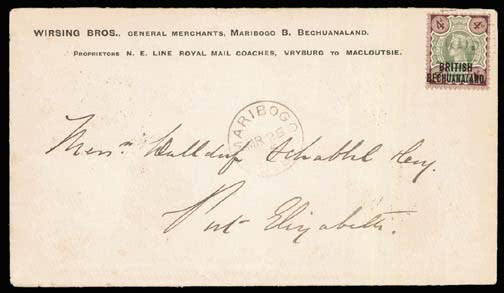 WIRSING BROS., GENERAL MERCHANTS, MARIBOGO B. BECHUANALAND.
PROPRIETORS N. E. LINE ROYAL MAIL COACHES, VRYBURG TO MACLOUTSIE.
4d 4d
BRITISH
BECHUANALAND
MARIBOGO
MR 26
Messrs
Port Elizabeth.